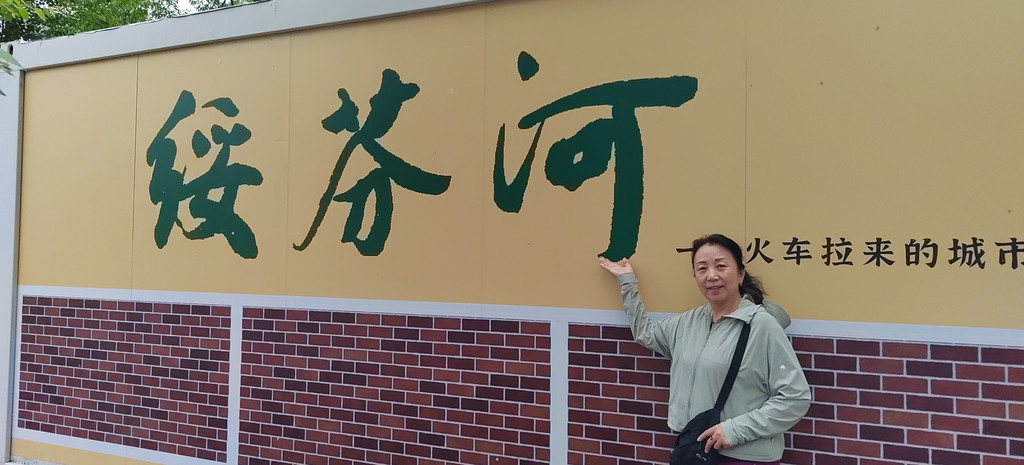 绥芬河
一 火车拉来的城市